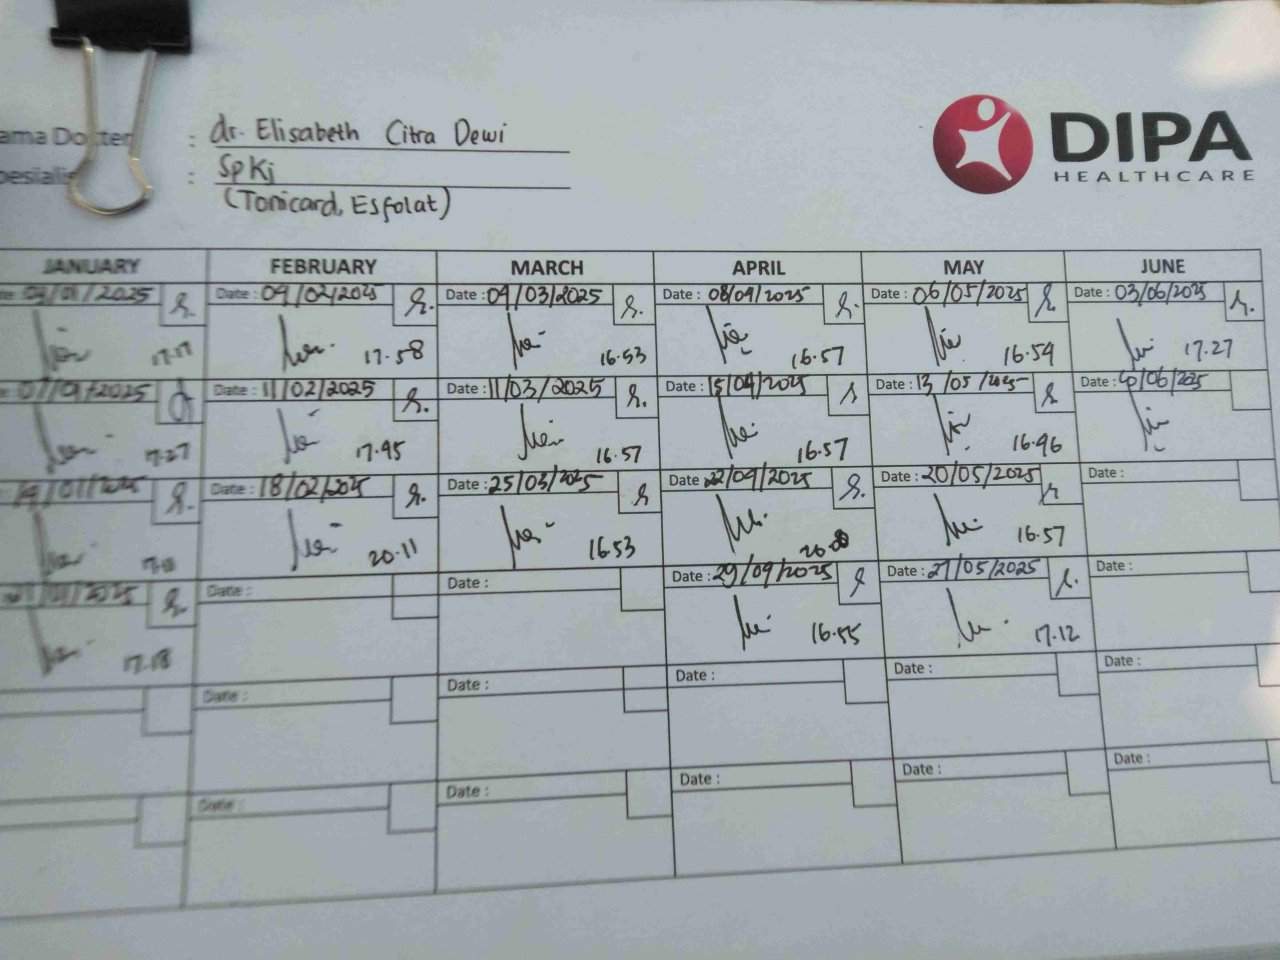 ama Dokter : dr. Elisabeth Citra Dewi
pesialis : SpKj
(Tonicard, Esfolat)
DIPA
HEALTHCARE
JANUARY FEBRUARY MARCH APRIL MAY JUNE
Date : 04/02/2025 Date : 04/03/2025 Date : 08/04/2025 Date : 06/05/2025 Date : 03/06/2025
17.17 17.58 16.53 16.57 16.54 17.27
07/01/2025 Date : 11/02/2025 Date : 11/03/2025 Date : 15/04/2025 Date : 13/05/2025 Date : 10/06/2025
17.27 17.45 16.57 16.57 16.46
14/01/2025 Date : 18/02/2025 Date : 25/03/2025 Date : 22/04/2025 Date : 20/05/2025 Date :
20.11 16.53 16.57
Date : Date : Date : 29/04/2025 Date : 27/05/2025 Date :
17.18 16.55 17.12
Date : Date : Date : Date : Date :
Date : Date : Date : Date : Date :